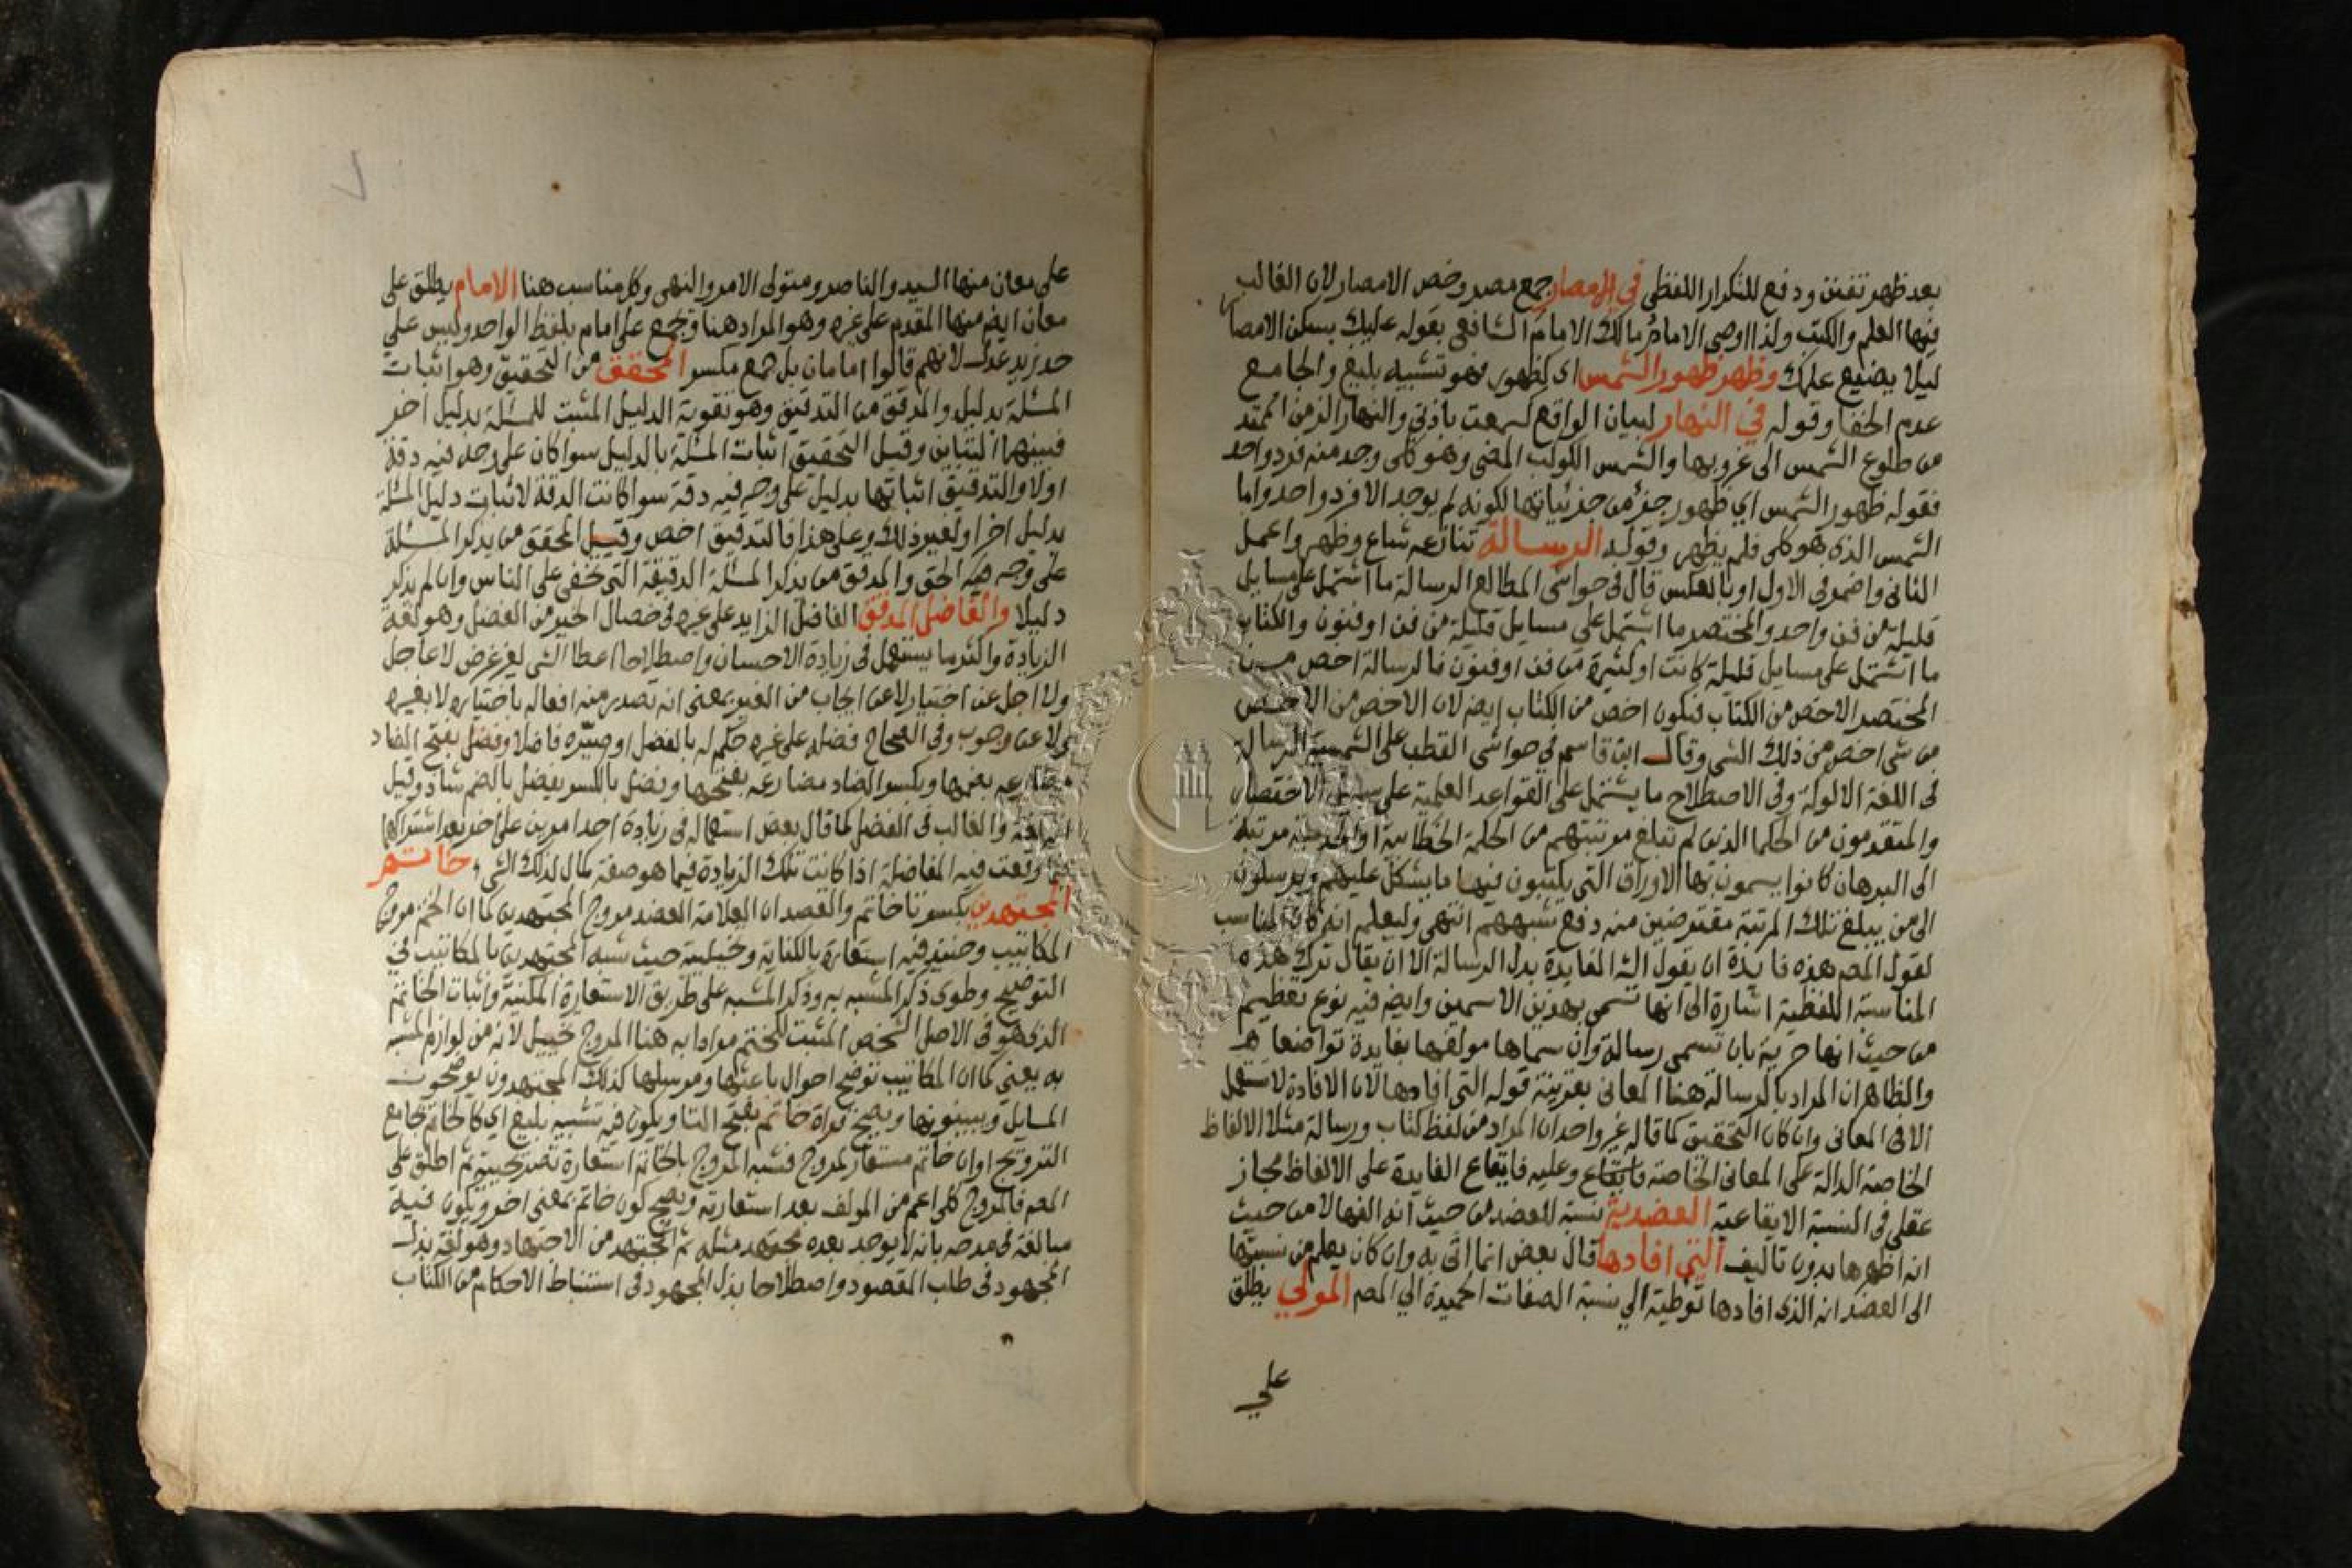 بعد ظهر تفنن ودفع للتكرار اللفظي في الامصار جمع مصر وخص الامصار لان الغالب
فيها العلم والكتب ولذا اوصى الامام مالك الامام الشافعي بقوله عليك بسكن الامصار
ليلا يضيع علمك وظهر ظهور الشمس اي كظهور فهو تشبيه بليغ والجامع
عدم الخفا وقوله في النهار لبيان الواقع كسمعت باذني والنهار الزمن الممتد
من طلوع الشمس الى غروبها والشمس الكوكب المضي وهو كلي وجد منه فرد واحد
فقوله ظهور الشمس اي ظهور جزئ من جزئياتها لكونه لم يوجد الا فرد واحد واما
الشمس الذي هو كلي فلم يظهر وقوله الرسالة تنازعه شاع وظهر واعمل
الثاني واضمر في الاول او بالعكس قال في حواشي المطالع الرسالة ما اشتمل على مسايل
قليلة من فن واحد والمختصر ما اشتمل على مسايل قليلة من فن او فنون والكتاب
ما اشتمل على مسايل قليلة كانت او كثيرة من فن او فنون فالرسالة اخص من
المختصر الاخص من الكتاب فتكون اخص من الكتاب ايضا لان الاخص من الاخص
من شي اخص من ذلك الشي وقال ابن قاسم في حواشي القطب على الشمسية الرسالة
في اللغة الالوكة وفي الاصطلاح ما يشتمل على القواعد العلمية على سبيل الاختصار
والمتقدمون من الحكما الذين لم تبلغ مرتبتهم من الحكمة الخطابية او الجدلية مرتبة
الى البرهان كانوا يسمون بها الاوراق التي يكتبون فيها ما يشكل عليهم ويرسلون
الى من يبلغ تلك المرتبة مقترضين منه دفع شبههم انتهى وليعلم انه كان المناسب
لقول المصم هذه فايدة ان يقول الشـ الفايدة بدل الرسالة الا ان يقال ترك هذه
المناسبة اللفظية اشارة الى انها تسمى بهذين الاسمين وايضا فيه نوع تعظيم
من حيث انها حرية بان تسمى رسالة وان سماها مولفها بفايدة تواضعا هـ
والظاهر ان المراد بالرسالة هنا المعاني بقرينة قوله التي افادها لان الافادة لا تستعمل
الا في المعاني وان كان التحقيق كما قاله غير واحد ان المراد من لفظ كتاب ورسالة مثلا الالفاظ
الخاصة الدالة على المعاني الخاصة فايقاع وعليه فايقاع الفايدة على الالفاظ مجاز
عقلي في النسبة الايقاعية العضدية نسبة للعضد من حيث انه الفها لا من حيث
انه اظهرها بدون تاليف التي افادها قال بعض انما اتى به وان كان يعلم من نسبتها
الى العضد انه الذي افادها توطية الى نسبة الصفات الحميدة الى المصم المولي يطلق
علي
٧
على معان منها السيد والناصر ومتولى الامر والنهى وكل مناسب هنا الامام يطلق على
معان ايضا منها المقدم على غيره وهو المراد هنا وتجمع على امام بلفظ الواحد وليس على
حد زيد عدل لانهم قالوا امامان بل جمع مكسر المحقق من التحقيق وهو اثبات
المسئلة بدليل والمدقق من التدقيق وهو تقوية الدليل المثبت للمسئلة بدليل اخر
فبينهما التباين وقيل التحقيق اثبات المسئلة بالدليل سوا كان على وجه فيه دقة
اولا والتدقيق اثباتها بدليل على وجه فيه دقة سوا كانت الدقة لاثبات دليل المسئلة
بدليل اخر او لغير ذلك وعلى هذا فالتدقيق اخص وقيل المحقق من يذكر المسئلة
على وجه هيه الحق والمدقق من يذكر المسئلة الدقيقة التي تخفى على الناس وان لم يذكر
دليلا والفاضل المدقق الفاضل الزايد على غيره في خصال الخير من الفضل وهو لغة
الزيادة واكثر ما يستعمل في زيادة الاحسان واصطلاحا اعطا الشي لغير غرض لا عاجل
ولا اجل عن اختيار لا عن ايجاب من الغير بمعنى انه تصدر منه افعاله باختياره لا بغيره
ولا عن وجوب وفي الصحاح فضله على غيره حكم له بالفضل او صيره فاضلا وفضل بفتح الضاد
مضارعه بضمها وبكسر الضاد مضارعه بفتحها وفضل بالكسر يفضل بالضم شاذ وقيل
والغالب في الفضل كما قال بعض استعماله في زيادة احد امرين على اخر بعد اشتراكهما
فيما وقعت فيه المفاضلة اذا كانت تلك الزيادة فيما هو صفة كمال لذلك الشي خاتم
المجتهدين بكسر تا خاتم والقصد ان العلامة العضد مروج المجتهدين كما ان الختم مروج
المكاتيب وحينئذ فيه استعارة بالكناية وتخييلية حيث شبه المجتهدين بالمكاتيب في
التوضيح وطوى ذكر المشبه به وذكر المشبه على طريق الاستعارة المكنية واثبات الخاتم
الذي هو في الاصل الشخص المثبت للختم مرادا به هنا المروج تخييل لانه من لوازم المشبه
به يعني كما ان المكاتيب توضح احوال باعثها ومرسلها كذلك المجتهدون يوضحون
المسايل ويبينونها ويصح قراة خاتم بفتح التا ويكون فيه تشبيه بليغ اي كالخاتم بجامع
الترويج او ان خاتم مستعار لمروج فشبه المروج بالخاتم استعارة تصريحية ثم اطلق على
المصم فالمروج كلي اعم من المولف بعد استعارته ويصح كون خاتم بمعنى اخر ويكون فيه
مبالغة في مدحه بانه لا يوجد بعده مجتهد مثله ثم المجتهد من الاجتهاد وهو لغة بذل
المجهود في طلب المقصود واصطلاحا بذل المجهود في استنباط الاحكام من الكتاب